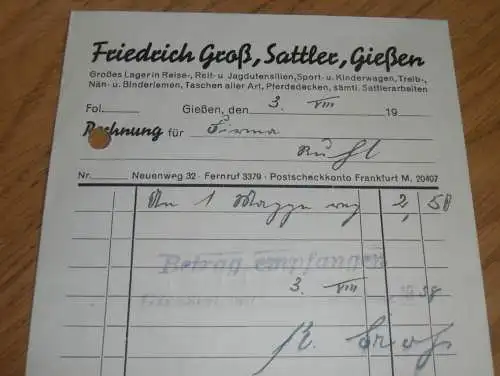 Friedrich Groß, Sattler, Gießen
Großes Lager in Reise-, Reit- u. Jagdutensilien, Sport- u. Kinderwagen, Treib-,
Näh- u. Binderiemen, Taschen aller Art, Pferdedecken, sämtl. Sattlerarbeiten
Fol. Gießen, den 3. VIII 19
Rechnung für Firma
Ruhl
Nr. Neuenweg 32 · Fernruf 3379 · Postscheckkonto Frankfurt M. 20407
An 1 2,50
Betrag empfangen
3. VIII 1938